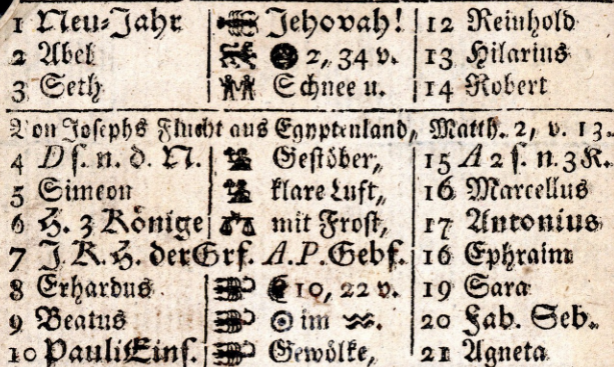 1 Neu-Jahr Jehovah! 12 Reinhold
2 Abel 2, 34 v. 13 Hilarius
3 Seth Schnee u. 14 Robert
Von Josephs Flucht aus Egyptenland, Matth. 2, v. 13.
4 D s. n. d. N. Gestöber, 15 A 2 s. n. 3 K.
5 Simeon klare Luft, 16 Marcellus
6 H. 3 Könige mit Frost, 17 Antonius
7 J. K. H. der Grf. A. P. Gebs. 16 Ephraim
8 Erhardus 10, 22 v. 19 Sara
9 Beatus ☉ im ♒. 20 Fab. Seb.
10 Pauli Eins. Gewölke, 21 Agneta